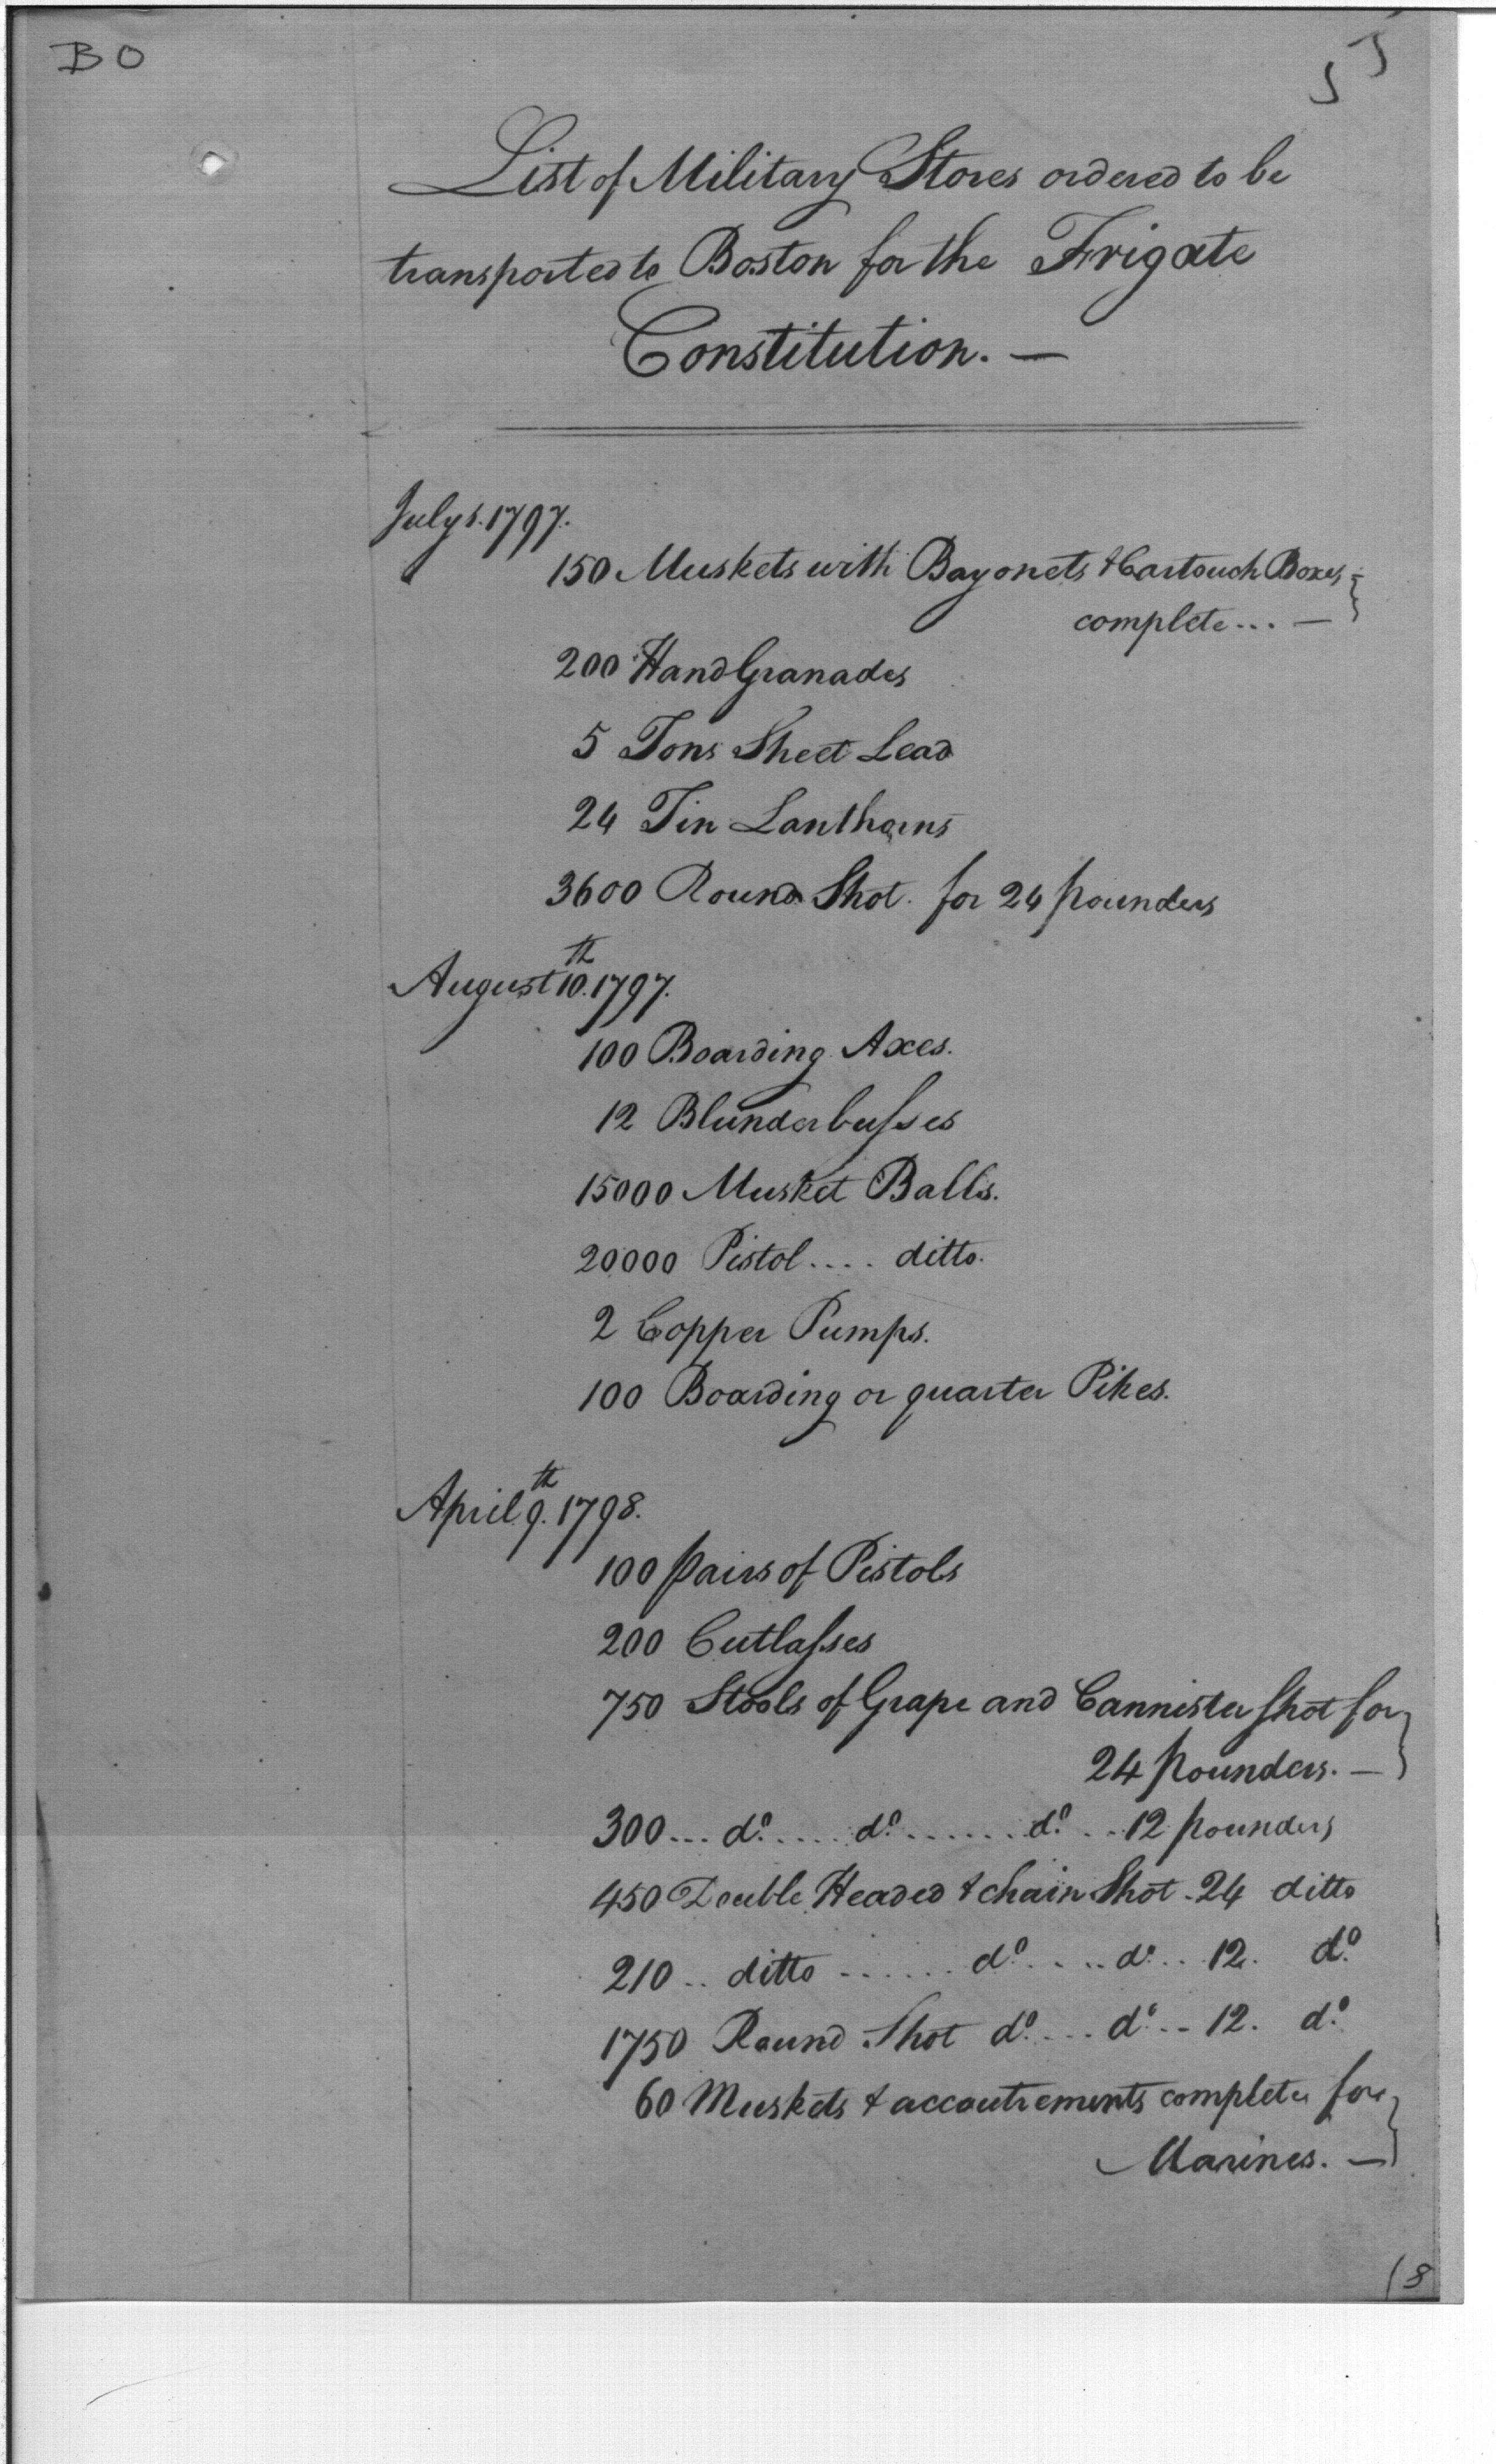 BO
List of Military Stores ordered to be
transported to Boston for the Frigate
Constitution. —
July 1797.
150 Muskets with Bayonets & Cartouch Boxes
complete... —
200 Hand Granades
5 Tons Sheet Lead
24 Tin Lanthorns
3600 Round Shot. for 24 pounders
August 10th. 1797.
100 Boarding Axes.
12 Blunderbuſses
15000 Musket Balls.
20000 Pistol .... ditto.
2 Copper Pumps.
100 Boarding or quarter Pikes.
April 9th. 1798.
100 pairs of Pistols
200 Cutlaſses
750 Stools of Grape and Cannister shot for
24 pounders. —
300 ... do. ..... do. ...... do. .. 12 pounders
450 Double Headed & chain Shot - 24 ditto
210 .. ditto ...... do. .... do. .. 12. do.
1750 Round Shot do. ... do. .. 12. do.
60 Muskets & accoutrements complete for
Marines. —
(8